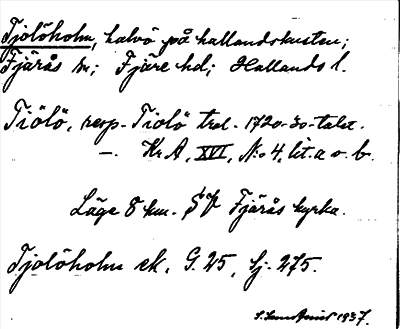 Tjolöholm, halvö på hallandskusten;
Fjärås sn; Fjäre hd; Hallands l.
Tiölö, resp. Tiolö trol. 1720-30-talet.
—. Kr A, XVI, N:o 4, lit. a o. b.
Läge 8 km. SV Fjärås kyrka.
Tjolöholm ek. G. 25, Sj. 275.
1937.